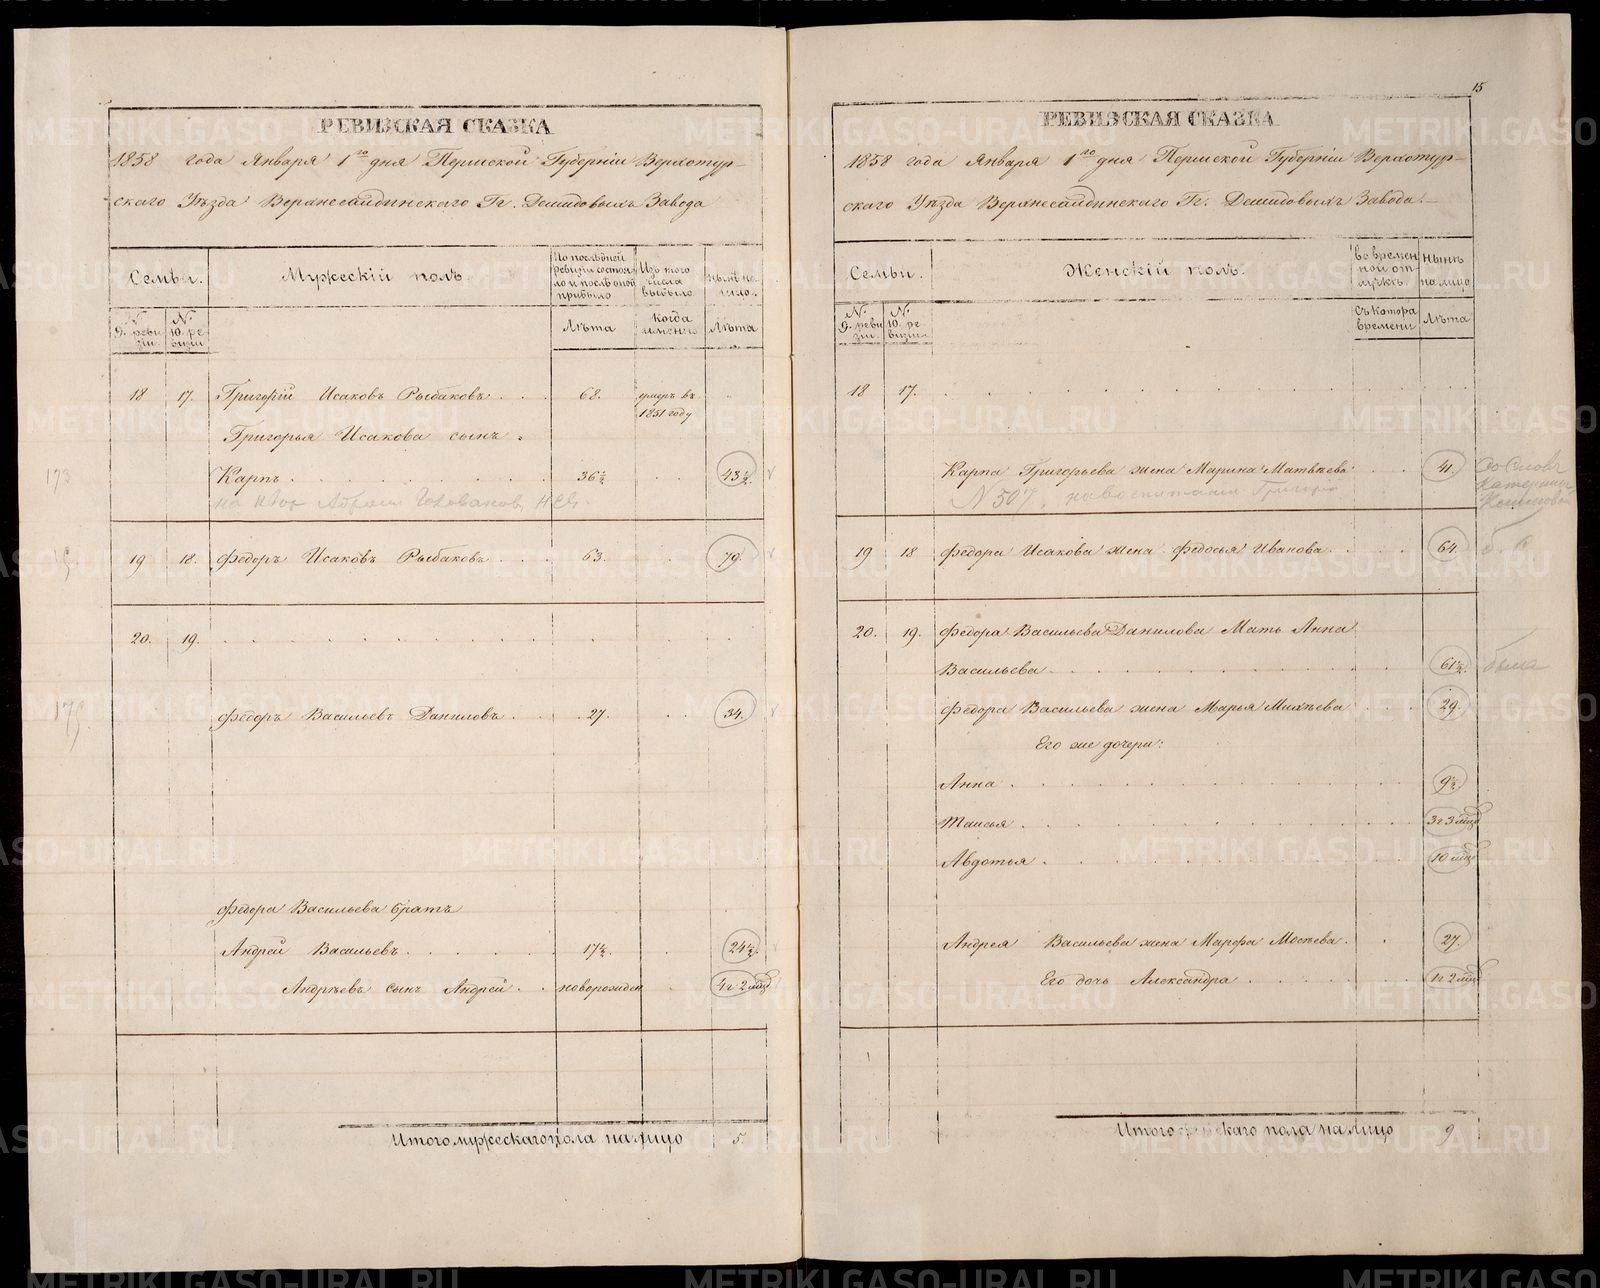 РЕВИЗСКАЯ СКАЗКА
1858 года Января 1го дня Пермской Губерніи Верхотур-
скаго Уѣзда Верхнесалдинскаго Гг. Демидовыхъ Завода
Семьи.
Мужескій полъ.
По послѣдней ревизіи состояло и послѣ оной прибыло.
Изъ того числа выбыло
Нынѣ на лицо.
№ 9. ревизіи.
№ 10. ревизіи
Лѣта
Когда именно
Лѣта
18 17. Григорій Исаковъ Рыбаковъ 68. умеръ въ 1851 году
Григорья Исакова сынъ.
173 Карпъ 36½ 43½.
19 18. Федоръ Исаковъ Рыбаковъ 63. 70.
20. 19.
Федоръ Васильевъ Даниловъ 27. 34.
Федора Васильева братъ
Андрей Васильевъ 17½. 24½.
Андрѣевъ сынъ Андрей новорожден 4 г 2 мѣц
Итого мужескаго пола на лицо 5.
15
РЕВИЗСКАЯ СКАЗКА
1858 года Января 1го дня Пермской Губерніи Верхотур-
скаго Уѣзда Верхнесалдинскаго Гг. Демидовыхъ Завода.
Семьи.
Женскій полъ.
Во временной отлучкѣ
Нынѣ на лицо
№ 9. ревизіи.
№ 10. ревизіи.
Съ котора времени
Лѣта
18 17.
Карпа Григорьева жена Марина Матвѣева 41. Со словъ
№ 507. на воспитании Григорій
19 18 Федора Исакова жена Федосья Иванова 64.
20. 19. Федора Васильева Данилова Мать Анна
Васильева 61½.
Федора Васильева жена Марья Михѣева 29.
Его же дочери:
Анна 9½.
Таисья 3 г 3 мѣц
Авдотья 10 мѣц
Андрея Васильева жена Марфа Мосѣева. 27.
Его дочь Александра 1 г 2 мѣц
Итого женскаго пола на лицо 9.
METRIKI.GASO-URAL.RU